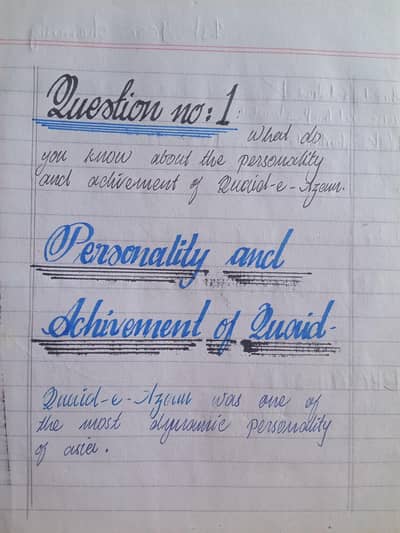 Question no:1:
What do
you know about the personality
and achivement of Quaid-e-Azam.
Personality and
Achivement of Quaid-
Quaid-e-Azam was one of
the most dynamic personality
of asia.